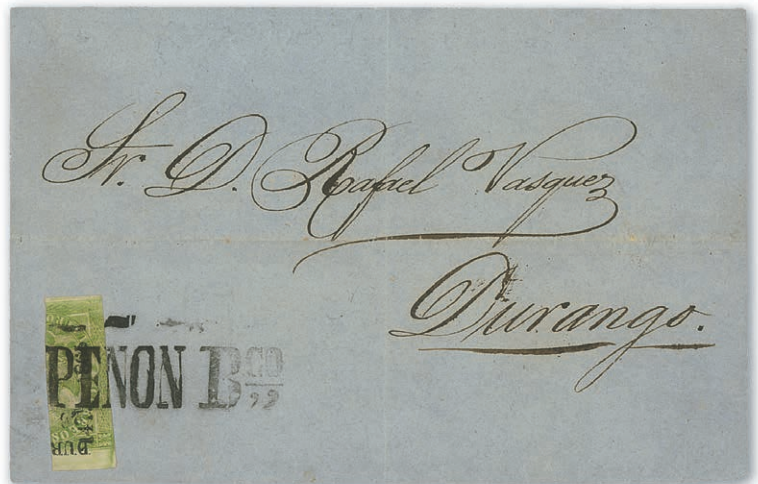 Sr. D. Rafael Vasquez
Durango.
PEÑON Bco
DUR